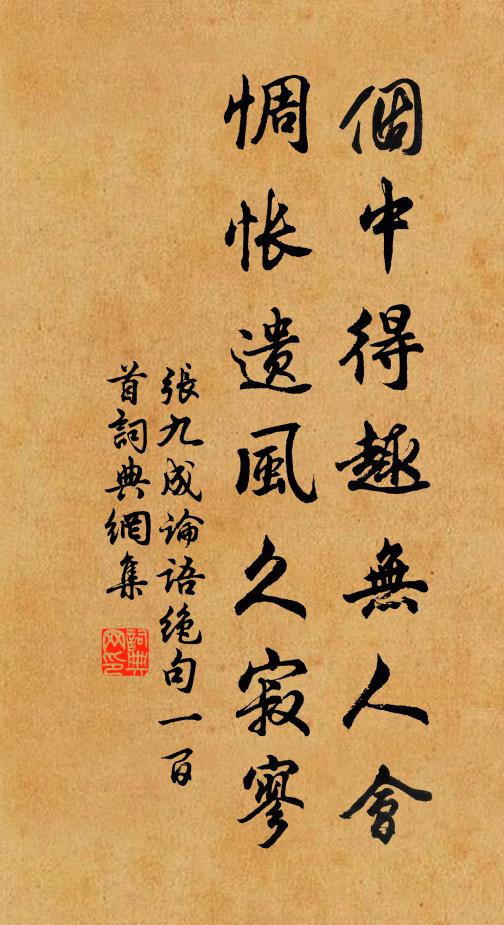 個中得趣無人會
惆悵遺風久寂寥
張九成論語絶句一百
首詞典網集
詞典网印